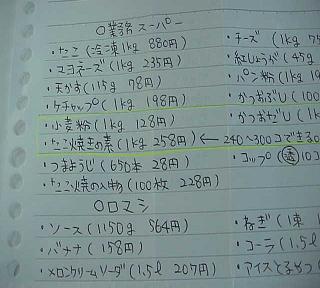 ○業務スーパー
・たこ (冷凍1kg 880円)
・マヨネーズ (1kg 235円)
・天かす (115g 78円)
・ケチャップ (1kg 198円)
・小麦粉 (1kg 128円)
・たこ焼きの素 (1kg 258円) ← 240〜300コできる
・つまようじ (650本 28円)
・たこ焼の入物 (100枚 228円)
・チーズ (1kg
・紅しょうが (45g
・パン粉 (1kg
・かつおぶし (100
・かつおだし (1k
・コップ (透 10コ
○ロマシ
・ソース (1150g 564円)
・バナナ (158円)
・メロンクリームソーダ (1.5l 207円)
・ねぎ (1束 1
・コーラ (1.5l
・アイスとろめっ